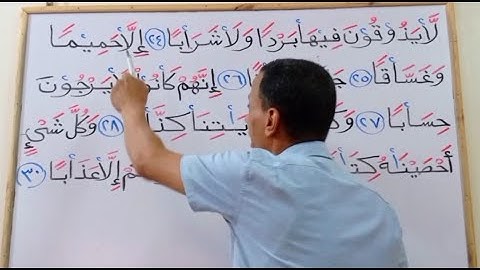 لَّا يَذُوقُونَ فِيهَا بَرْدًا وَلَا شَرَابًا ٢٤ إِلَّا حَمِيمًا
وَغَسَّاقًا ٢٥ ٢٦ إِنَّهُمْ يَرْجُونَ
حِسَابًا ٢٧ ٢٨ وَكُلَّ شَيْءٍ
أَحْصَيْنَاهُ إِلَّا عَذَابًا ٣٠